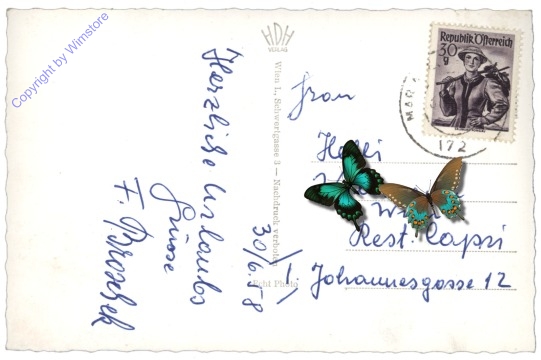 Copyright by Wimstore
HDH
VERLAG
Wien I., Schwertgasse 3 — Nachdruck verboten
Echt Photo
Republik Österreich
30
g
172
Herzliche Urlaubs
Grüsse
30/6.58
Frau
Rest. Capri
I.,
Johannesgasse 12